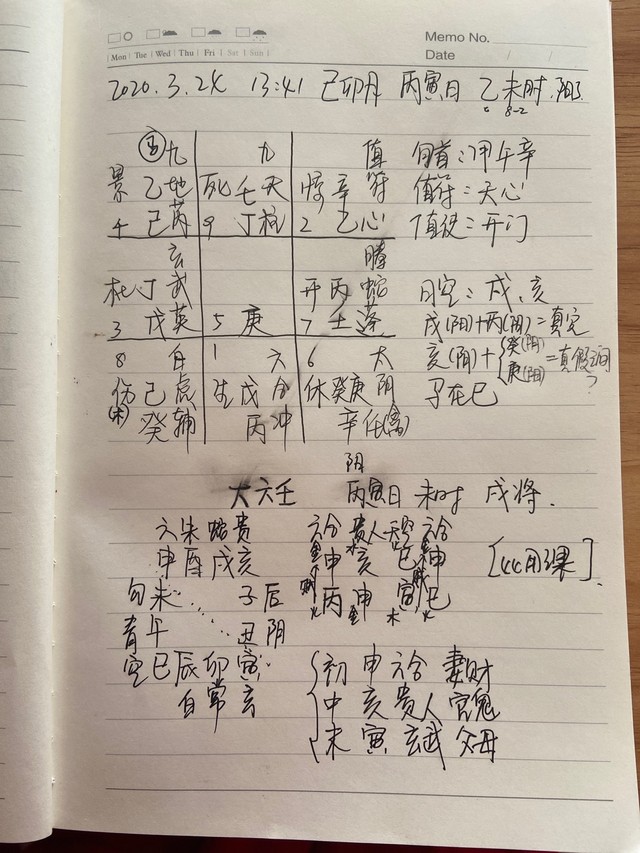 Memo No.
Mon Tue Wed Thu Fri Sat Sun
Date / /
2020.3.24 13:41 己卯月 丙寅日 乙未时.阳3
8-2
九 九 值 旬首:甲午辛
景 乙 地 死 壬 天 惊 辛 符 值符:天心
4 己 芮 9 丁 柱 2 乙 心 值使:开门
玄 腾
杜 丁 武 开 丙 蛇 日空:戌、亥
3 戊 英 5 庚 7 壬 蓬 戌(阳)+丙(阳)=真空
8 白 1 六 6 太 亥(阴)+ 癸(阴) 庚(阳) =真假之间?
伤 己 虎 生 戊 合 休 癸庚 阴 子在巳
(木) 癸 辅 丙 冲 辛 任(禽)
阴
大六壬 丙寅日 未时 戌将.
六 朱 蛇 贵 六合 贵人 天空 六合
申 酉 戌 亥 申 亥 巳 申 [44用课]
勾 未 子 后 丙 申 寅 巳
金 木 火
青 午 丑 阴
空 巳 辰 卯 寅 初 申 六合 妻财
白 常 玄 中 亥 贵人 官鬼
末 寅 玄武 父母